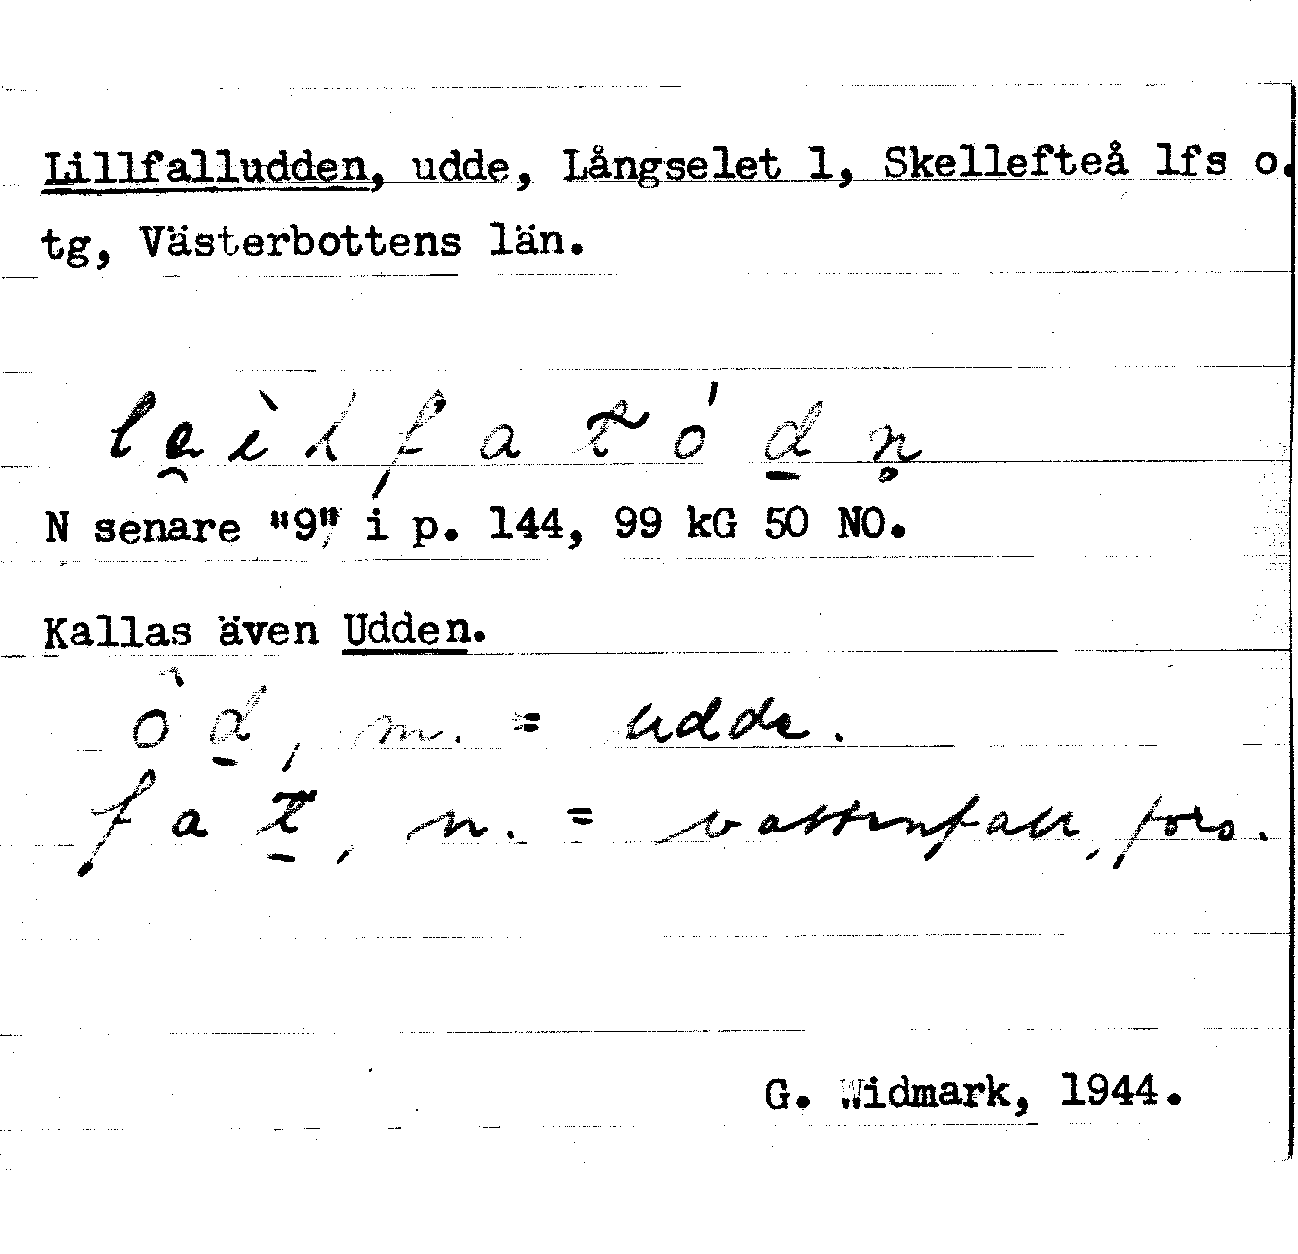 Lillfalludden, udde, Långselet 1, Skellefteå lfs o.
tg, Västerbottens län.
N senare "9" i p. 144, 99 kG 50 NO.
Kallas även Udden.
òd̲, m. = udde.
n. = vattenfall, fors.
G. Widmark, 1944.